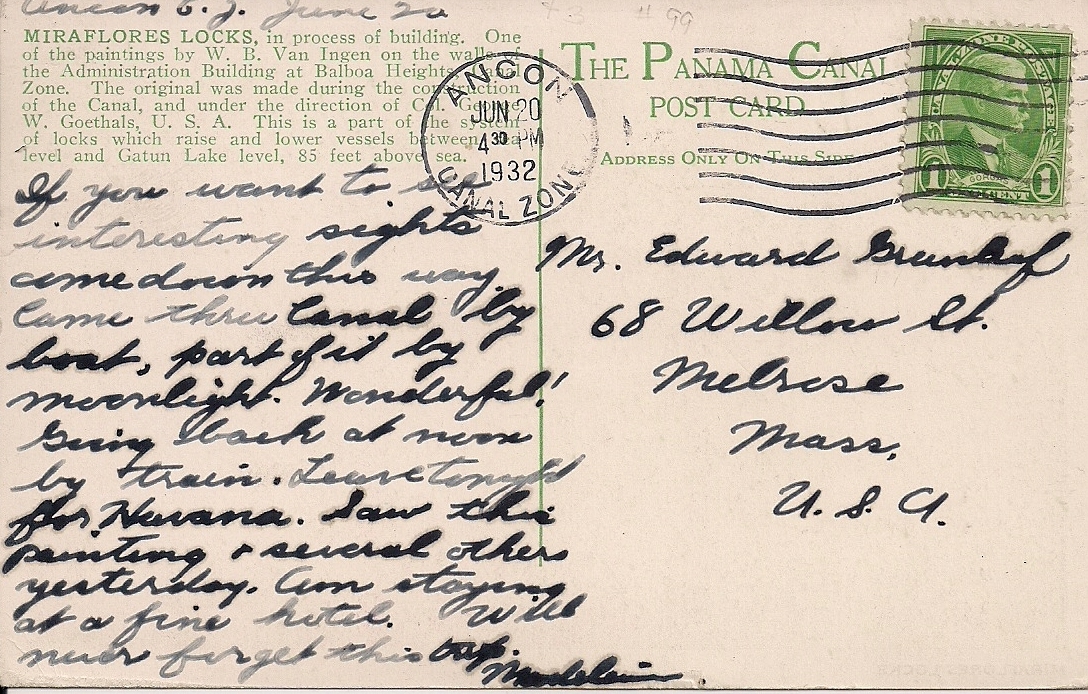 Ancon C.Z. June 20
# 99
MIRAFLORES LOCKS, in process of building. One
of the paintings by W. B. Van Ingen on the walls of
the Administration Building at Balboa Heights, Canal
Zone. The original was made during the construction
of the Canal, and under the direction of Col. George
W. Goethals, U. S. A. This is a part of the system
of locks which raise and lower vessels between sea
level and Gatun Lake level, 85 feet above sea.
If you want to see
interesting sights
come down this way.
Came thru Canal by
boat, part of it by
moonlight. Wonderful!
Going back at noon
by train. Leave tonight
for Havana. Saw this
painting + several others
yesterday. Am staying
at a fine hotel. Will
never forget this trip.
Madeleine
ANCON
JUN 20
4 30 PM
1932
CANAL ZONE
THE PANAMA CANAL
POST CARD
ADDRESS ONLY ON THIS SIDE
CANAL ZONE POSTAGE
GORGAS
1 CENT 1
Mr. Edward Greenleaf
68 Willow St.
Melrose
Mass.
U. S. A.